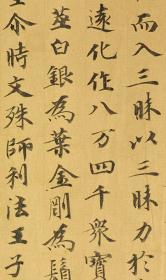 而入三昧以三昧力於
遠化作八万四千衆寶
莖白銀為葉金剛為鬚
尒時文殊師利法王子